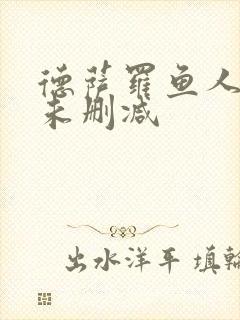 德萨罗鱼人
未删减
出水洋平 填輪